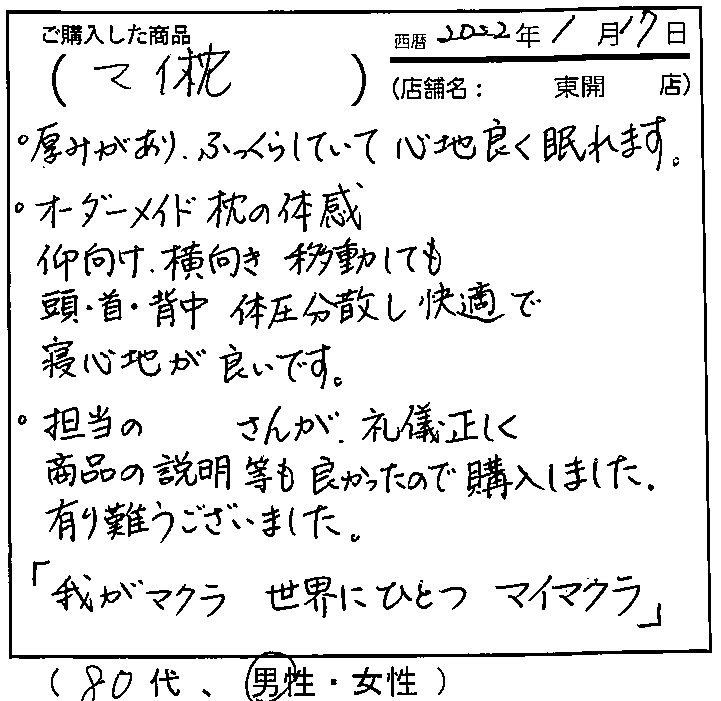 ご購入した商品
西暦 2022年 1月17日
( マイ枕 )
(店舗名： 東開 店)
○厚みがあり、ふっくらしていて 心地良く眠れます。
○オーダーメイド 枕の体感
仰向け、横向き 移動しても
頭・首・背中 体圧分散し 快適で
寝心地が 良いです。
○担当の さんが、礼儀正しく
商品の説明等も 良かったので 購入しました。
有り難うございました。
「我がマクラ 世界にひとつ マイマクラ」
( 80代、男性・女性 )